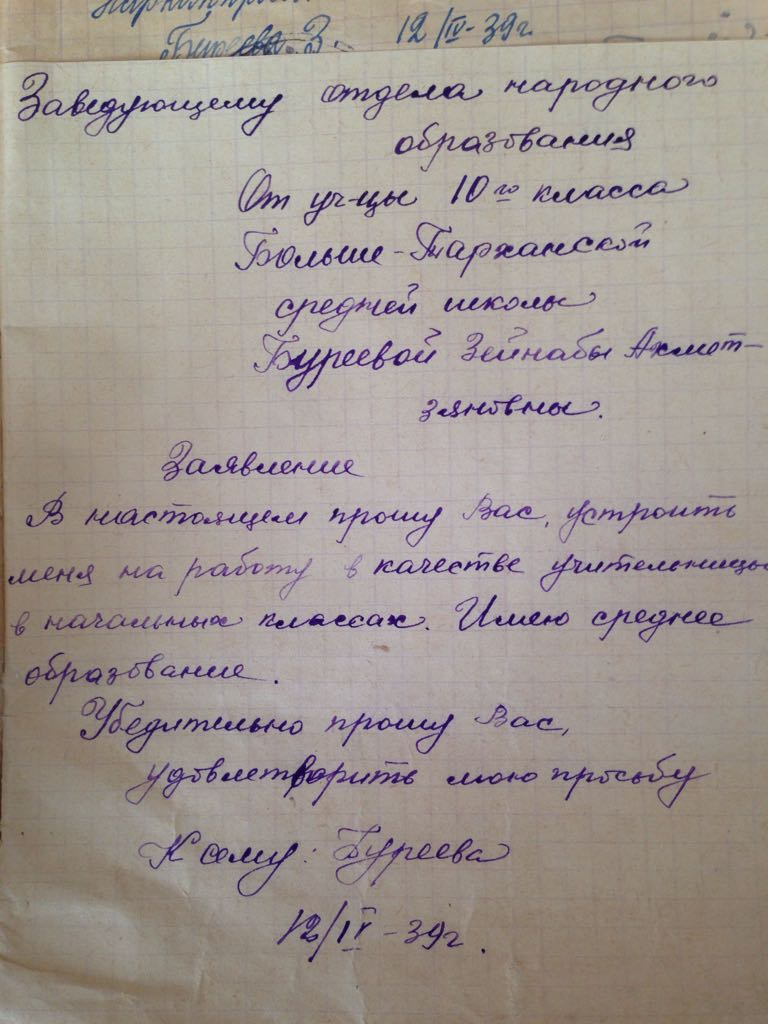 Биреева З. 12/IV-39г.
Заведующему отдела народного
образования
От уч-цы 10го класса
Больше-Тарханской
средней школы
Буреевой Зейнабы Ахмет-
зяновны.
Заявление
В настоящем прошу Вас, устроить
меня на работу в качестве учительницы
в начальных классах. Имею среднее
образование.
Убедительно прошу Вас,
удовлетворить мою просьбу
К сему: Буреева
12/IV-39г.